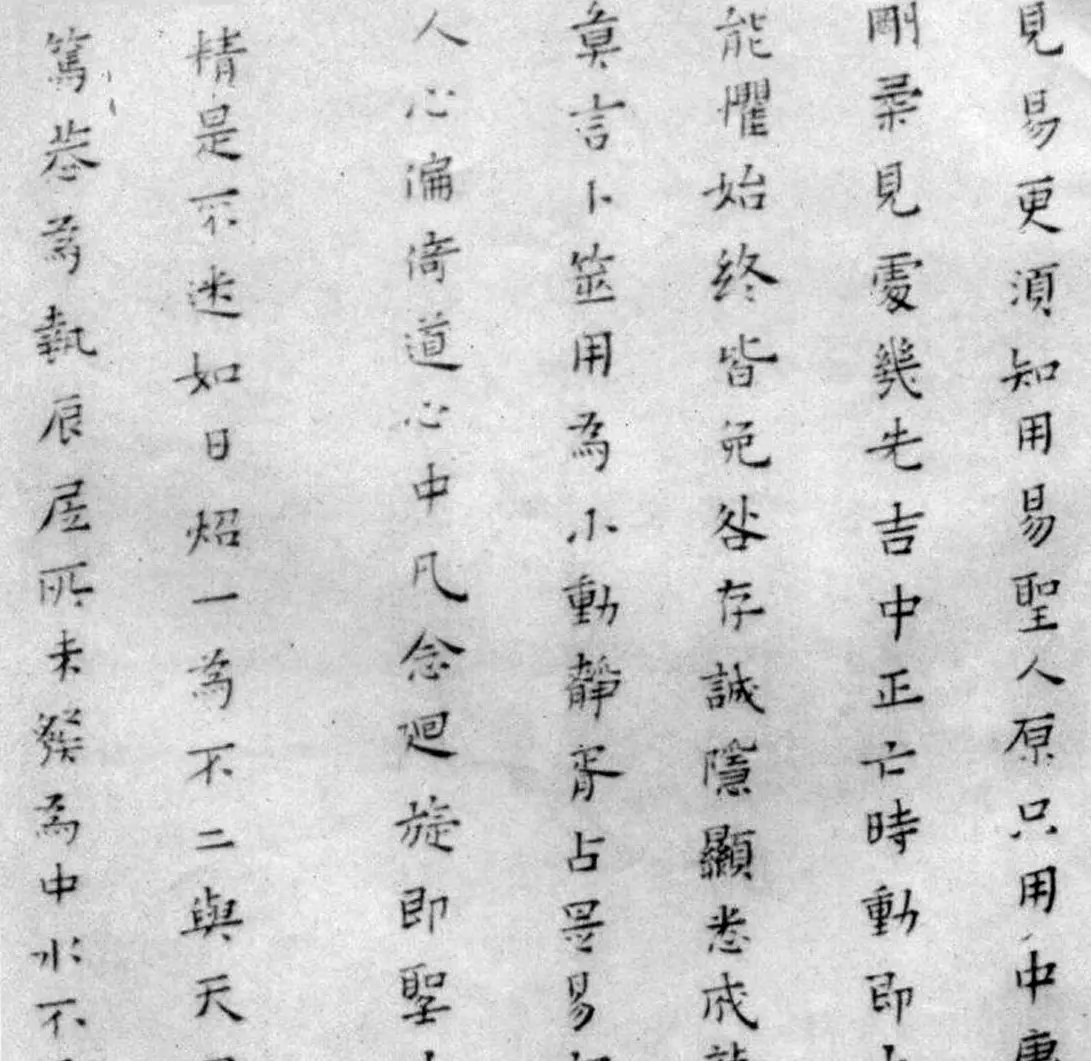 見易更須知用易聖人原只用中庸
剛柔見處幾先吉中正亡時動即
能懼始終皆免咎存誠隱顯悉成
莫言卜筮用為小動靜胥占是易
人心偏倚道心中凡念迴旋即聖
精是不迷如日炤一為不二與天
篤恭為執辰居所未發為中水不